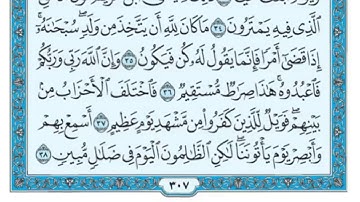 ٱلَّذِى فِيهِ يَمْتَرُونَ ۝٣٤ مَا كَانَ لِلَّهِ أَن يَتَّخِذَ مِن وَلَدٍ ۖ سُبْحَٰنَهُۥٓ ۚ
إِذَا قَضَىٰٓ أَمْرًا فَإِنَّمَا يَقُولُ لَهُۥ كُن فَيَكُونُ ۝٣٥ وَإِنَّ ٱللَّهَ رَبِّى وَرَبُّكُمْ
فَٱعْبُدُوهُ ۚ هَٰذَا صِرَٰطٌ مُّسْتَقِيمٌ ۝٣٦ فَٱخْتَلَفَ ٱلْأَحْزَابُ مِنۢ
بَيْنِهِمْ ۖ فَوَيْلٌ لِّلَّذِينَ كَفَرُوا۟ مِن مَّشْهَدِ يَوْمٍ عَظِيمٍ ۝٣٧ أَسْمِعْ بِهِمْ
وَأَبْصِرْ يَوْمَ يَأْتُونَنَا ۖ لَٰكِنِ ٱلظَّٰلِمُونَ ٱلْيَوْمَ فِى ضَلَٰلٍ مُّبِينٍ ۝٣٨
٣٠٧